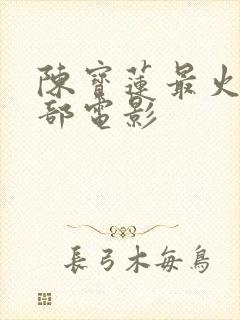 陳寶蓮最火
部電影
長弓木每鳥